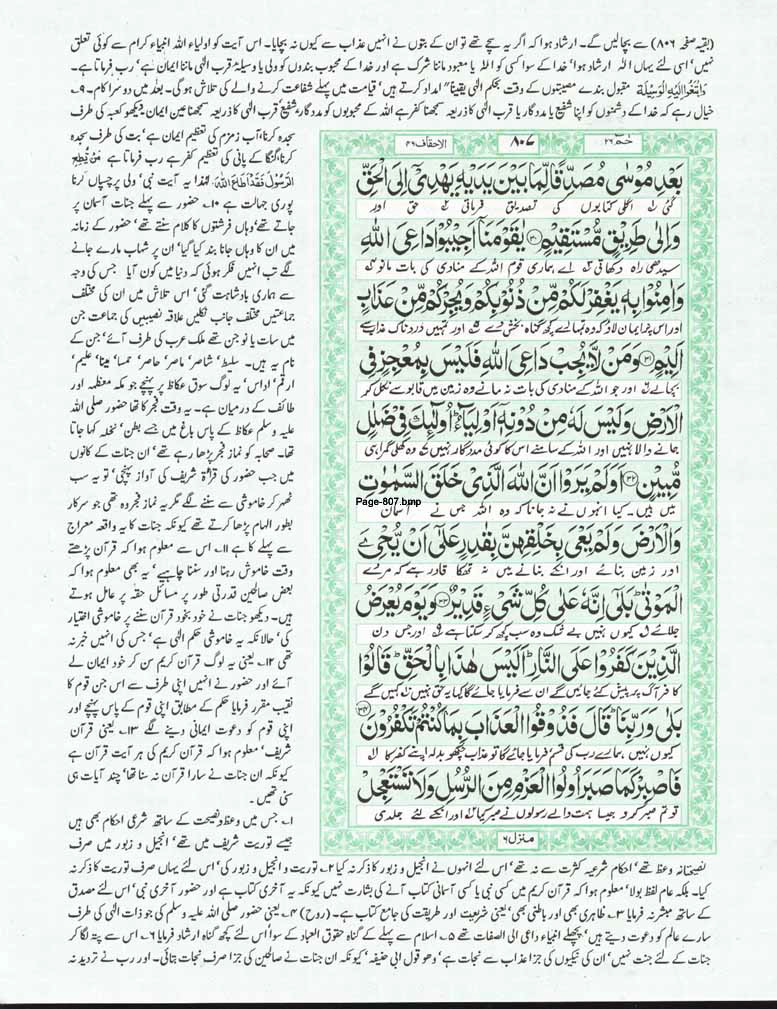 (بقیہ صفحہ ۸۰۶) سے بچالیں گے۔ ارشاد ہوا کہ اگر یہ سچے تھے تو ان کے بتوں نے انہیں عذاب سے کیوں نہ بچایا۔ اس آیت کو اولیاء اللہ انبیاء کرام سے کوئی تعلق
نہیں' اسی لئے یہاں اللہ ارشاد ہوا' خدا کے سوا کسی کو اللہ یا معبود ماننا شرک ہے اور خدا کے محبوب بندوں کو ولی یا وسیلۂ قرب الٰہی ماننا ایمان ہے' رب فرماتا ہے۔
وَابْتَغُوْٓا اِلَيْهِ الْوَسِيْلَةَ مقبول بندے مصیبتوں کے وقت بحکم الٰہی یقیناً امداد کرتے ہیں' قیامت میں پہلے شفاعت کرنے والے کی تلاش ہو گی۔ بعد میں دوسرا کام۔ ۹۔
خیال رہے کہ خدا کے دشمنوں کو اپنا شفیع یا مددگار یا قرب الٰہی کا ذریعہ سمجھنا کفر ہے اللہ کے محبوبوں کو مددگار شفیع قرب الٰہی کا ذریعہ سمجھنا عین ایمان دیکھو کعبہ کی طرف
سجدہ کرنا' آب زمزم کی تعظیم ایمان ہے' بت کی طرف سجدہ
کرنا' گنگا کے پانی کی تعظیم کفر ہے رب فرماتا ہے مَنْ يُّطِعِ
الرَّسُوْلَ فَقَدْ اَطَاعَ اللّٰهَ۔ لہٰذا یہ آیت نبی' ولی پر چسپاں کرنا
پوری جہالت ہے ۱۰۔ حضور سے پہلے جنات آسمان پر
جاتے تھے' وہاں فرشتوں کا کلام سنتے تھے' حضور کے زمانہ
میں ان کا وہاں جانا بند کیا گیا' ان پر شہاب مارے جانے
لگے تب انہیں فکر ہوئی کہ دنیا میں کون آیا جس کی وجہ
سے ہماری بادشاہت گئی' اس تلاش میں ان کی مختلف
جماعتیں مختلف جانب نکلیں علاقہ نصیبیں کی جماعت جن
میں سات یا نو جن تھے ملک عرب کی طرف آئے' جن کے
نام یہ ہیں۔ سلیط' شاصر' ماصر' حاصر' حسا' مینا' علیم'
ارقم' اداس' یہ لوگ سوق عکاظ پر پہنچے جو مکہ معظمہ اور
طائف کے درمیان ہے۔ یہ وقت فجر کا تھا حضور صلی اللہ
علیہ وسلم عکاظ کے پاس باغ میں جسے بطن' نخلہ کہا جاتا
تھا۔ صحابہ کو نماز فجر پڑھا رہے تھے' ان جنات کے کانوں
میں جب حضور کی قرأۃ شریف کی آواز پہنچی' تو یہ سب
ٹھہر کر خاموشی سے سننے لگے مگر یہ نماز فجر وہ تھی جو سرکار
بطور الہام پڑھا کرتے تھے کیونکہ جنات کا یہ واقعہ معراج
سے پہلے کا ہے ۱۱۔ اس سے معلوم ہوا کہ قرآن پڑھتے
وقت خاموش رہنا اور سننا چاہیے' یہ بھی معلوم ہوا کہ
بعض صالحین قدرتی طور پر مسائل حقہ پر عامل ہوتے
ہیں۔ دیکھو جنات نے خود بخود قرآن سننے پر خاموشی اختیار
کی' حالانکہ یہ خاموشی حکم الٰہی ہے' جس کی انہیں خبر نہ
تھی ۱۲۔ یعنی یہ لوگ قرآن کریم سن کر خود ایمان لے
آئے اور حضور نے انہیں اپنی طرف سے اس جن قوم کا
نقیب مقرر فرمایا حکم کے مطابق اپنی قوم کے پاس پہنچے اور
اپنی قوم کو دعوت ایمانی دینے لگے ۱۳۔ یعنی قرآن
شریف' معلوم ہوا کہ قرآن کریم کی ہر آیت قرآن ہے
کیونکہ ان جنات نے سارا قرآن نہ سنا تھا' چند آیات ہی
سنی تھیں۔
۱۔ جس میں وعظ و نصیحت کے ساتھ شرعی احکام بھی ہیں
جیسے توریت شریف میں تھے' انجیل و زبور میں صرف
حٰمٓ ۲۶
۸۰۷
الاحقاف ۴۶
بَعْدِ مُوْسٰى مُصَدِّقًا لِّمَا بَيْنَ يَدَيْهِ يَهْدِيْٓ اِلَى الْحَقِّ
گئی اگلی کتابوں کی تصدیق فرماتی حق اور
وَاِلٰى طَرِيْقٍ مُّسْتَقِيْمٍ ۝ يٰقَوْمَنَآ اَجِيْبُوْا دَاعِيَ اللّٰهِ
سیدھی راہ دکھاتی اے ہماری قوم اللہ کے منادی کی بات مانو
وَاٰمِنُوْا بِهٖ يَغْفِرْ لَكُمْ مِّنْ ذُنُوْبِكُمْ وَيُجِرْكُمْ مِّنْ عَذَابٍ
اور اس پر ایمان لاؤ کہ وہ تمہارے کچھ گناہ بخش دے اور تمہیں دردناک عذاب سے
اَلِيْمٍ ۝ وَمَنْ لَّا يُجِبْ دَاعِيَ اللّٰهِ فَلَيْسَ بِمُعْجِزٍ فِي
بچالے اور جو اللہ کے منادی کی بات نہ مانے وہ زمین میں قابو سے نکل کر
الْاَرْضِ وَلَيْسَ لَهٗ مِنْ دُوْنِهٖٓ اَوْلِيَآءُ ؕ اُولٰٓئِكَ فِيْ ضَلٰلٍ
جانے والا نہیں اور اللہ کے سامنے اس کا کوئی مددگار نہیں وہ کھلی گمراہی
مُّبِيْنٍ ۝ اَوَلَمْ يَرَوْا اَنَّ اللّٰهَ الَّذِيْ خَلَقَ السَّمٰوٰتِ
میں ہیں۔ کیا انہوں نے نہ جانا کہ وہ اللہ جس نے آسمان
Page-807.bmp
وَالْاَرْضَ وَلَمْ يَعْيَ بِخَلْقِهِنَّ بِقٰدِرٍ عَلٰٓى اَنْ يُّحْيِۦَ
اور زمین بنائے اور انکے بنانے میں نہ تھکا قادر ہے کہ مردے
الْمَوْتٰى ؕ بَلٰٓى اِنَّهٗ عَلٰى كُلِّ شَيْءٍ قَدِيْرٌ ۝ وَيَوْمَ يُعْرَضُ
جلائے کیوں نہیں بے شک وہ سب کچھ کر سکتا ہے اور جس دن
الَّذِيْنَ كَفَرُوْا عَلَى النَّارِ ؕ اَلَيْسَ هٰذَا بِالْحَقِّ ؕ قَالُوْا
کافر آگ پر پیش کئے جائیں گے ان سے فرمایا جائے گا کیا یہ حق نہیں کہیں گے
بَلٰى وَرَبِّنَا ؕ قَالَ فَذُوْقُوا الْعَذَابَ بِمَا كُنْتُمْ تَكْفُرُوْنَ ۝
کیوں نہیں ہمارے رب کی قسم فرمایا جائے گا تو عذاب چکھو بدلہ اپنے کفر کا
فَاصْبِرْ كَمَا صَبَرَ اُولُوا الْعَزْمِ مِنَ الرُّسُلِ وَلَا تَسْتَعْجِلْ
تو تم صبر کرو جیسا ہمت والے رسولوں نے صبر کیا اور انکے لئے جلدی
منزل ۶
نصیحتانہ وعظ تھے' احکام شرعیہ کثرت سے نہ تھے' اس لئے انہوں نے انجیل و زبور کا ذکر نہ کیا ۲۔ توریت و انجیل و زبور کی' اس لئے یہاں صرف توریت کا ذکر نہ
کیا۔ بلکہ عام لفظ بولا' معلوم ہوا کہ قرآن کریم میں کسی نبی یا کسی آسمانی کتاب آنے کی بشارت نہیں کیونکہ یہ آخری کتاب ہے اور حضور آخری نبی' اس لئے مصدق
کے ساتھ مبشر نہ فرمایا ۳۔ ظاہری بھی اور باطنی بھی' یعنی شریعت اور طریقت کی جامع کتاب ہے۔ (روح) ۴۔ یعنی حضور صلی اللہ علیہ و سلم کی جو ذات الٰہی کی طرف
سارے عالم کو دعوت دیتے ہیں' پچھلے انبیاء داعی الی الصفات تھے ۵۔ اسلام سے پہلے کے گناہ حقوق العباد کے سوا' اس لئے کچھ گناہ ارشاد فرمایا ۶۔ اس سے پتہ لگا کر
جنات کے لئے جنت نہیں' ان کی نیکیوں کی جزا عذاب سے نجات ہے' وھو قول ابی حنیفہ' کیونکہ ان جنات نے صالحین کی جزا صرف نجات بتائی۔ اور رب نے تردید نہ